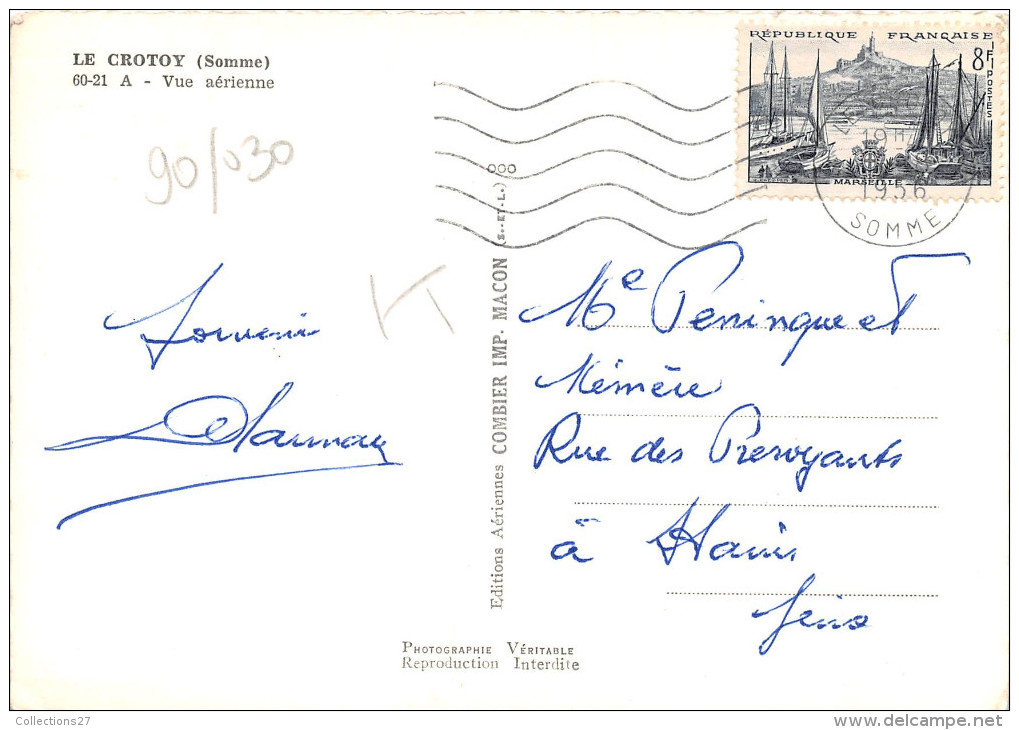 LE CROTOY (Somme)
60-21 A - Vue aérienne
90/030
Souvenir
RÉPUBLIQUE FRANÇAISE
8F
POSTES
MARSEILLE
1956
SOMME
Editions Aériennes COMBIER IMP. MACON (S.-ET-L.) 000
Me Peninque et
Mémère
Rue des Prévoyants
à
PHOTOGRAPHIE VÉRITABLE
Reproduction Interdite
Collections27
www.delcampe.net